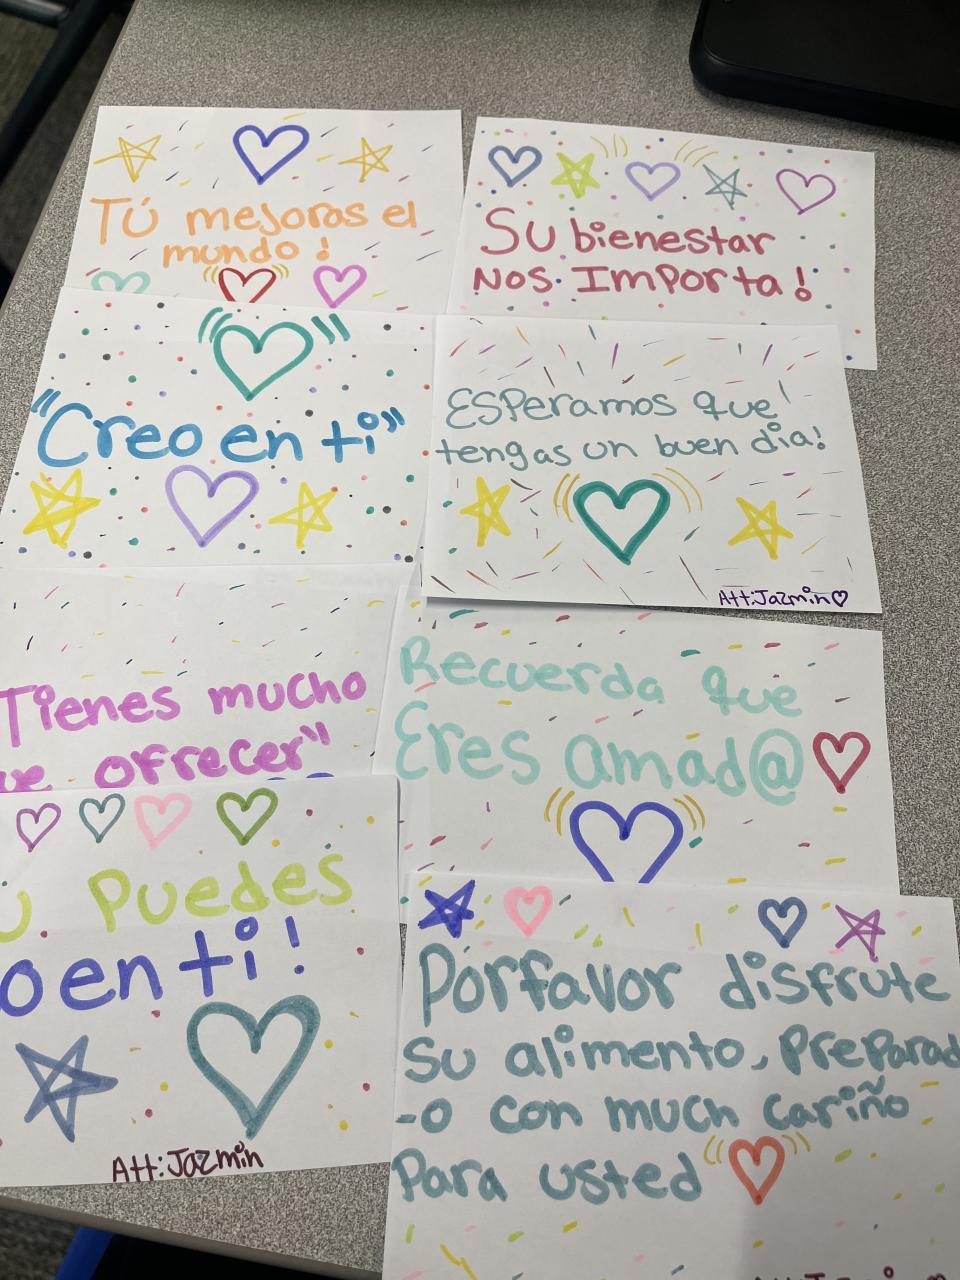 Tú mejoras el
mundo!
Su bienestar
Nos Importa!
"Creo en ti"
Esperamos que
tengas un buen dia!
Att:Jazmin
Tienes mucho
ofrecer"
Recuerda que
Eres amad@
Puedes
en ti!
Att:Jazmin
Porfavor disfrute
su alimento, preparad
-o con much cariño
Para usted